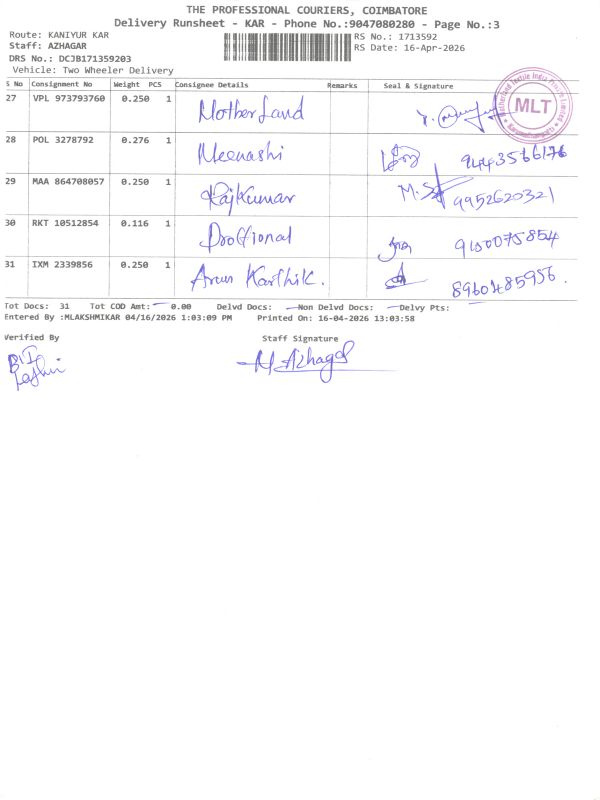 THE PROFESSIONAL COURIERS, COIMBATORE
Delivery Runsheet - KAR - Phone No.:9047080280 - Page No.:3
Route: KANIYUR KAR RS No.: 1713592
Staff: AZHAGAR RS Date: 16-Apr-2026
DRS No.: DCJB171359203
Vehicle: Two Wheeler Delivery
S No Consignment No Weight PCS Consignee Details Remarks Seal & Signature
27 VPL 973793760 0.250 1 Motherland
MLT
28 POL 3278792 0.276 1 Meenashi 9443566176
29 MAA 864708057 0.250 1 Rajkumar 9952620321
30 RKT 10512854 0.116 1
31 IXM 2339856 0.250 1 Arun Karthik. 8960485956.
Tot Docs: 31 Tot COD Amt: 0.00 Delvd Docs: Non Delvd Docs: Delvy Pts:
Entered By :MLAKSHMIKAR 04/16/2026 1:03:09 PM Printed On: 16-04-2026 13:03:58
Verified By Staff Signature
M Azhagar